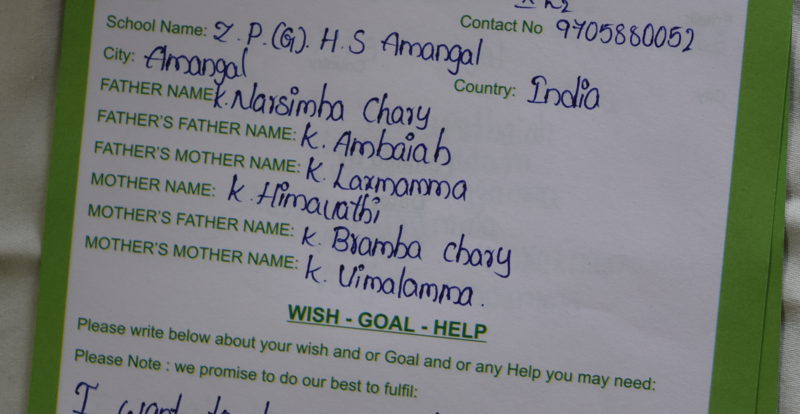 School Name: Z.P.(G). H.S Amangal Contact No 9705880052
City: Amangal Country: India
FATHER NAME: K. Narsimha Chary
FATHER'S FATHER NAME: K. Ambaiah
FATHER'S MOTHER NAME: K Laxmamma
MOTHER NAME: K. Himavathi
MOTHER'S FATHER NAME: K. Bramha chary
MOTHER'S MOTHER NAME: K. Vimalamma.
WISH - GOAL - HELP
Please write below about your wish and or Goal and or any Help you may need:
Please Note : we promise to do our best to fulfil:
I want to